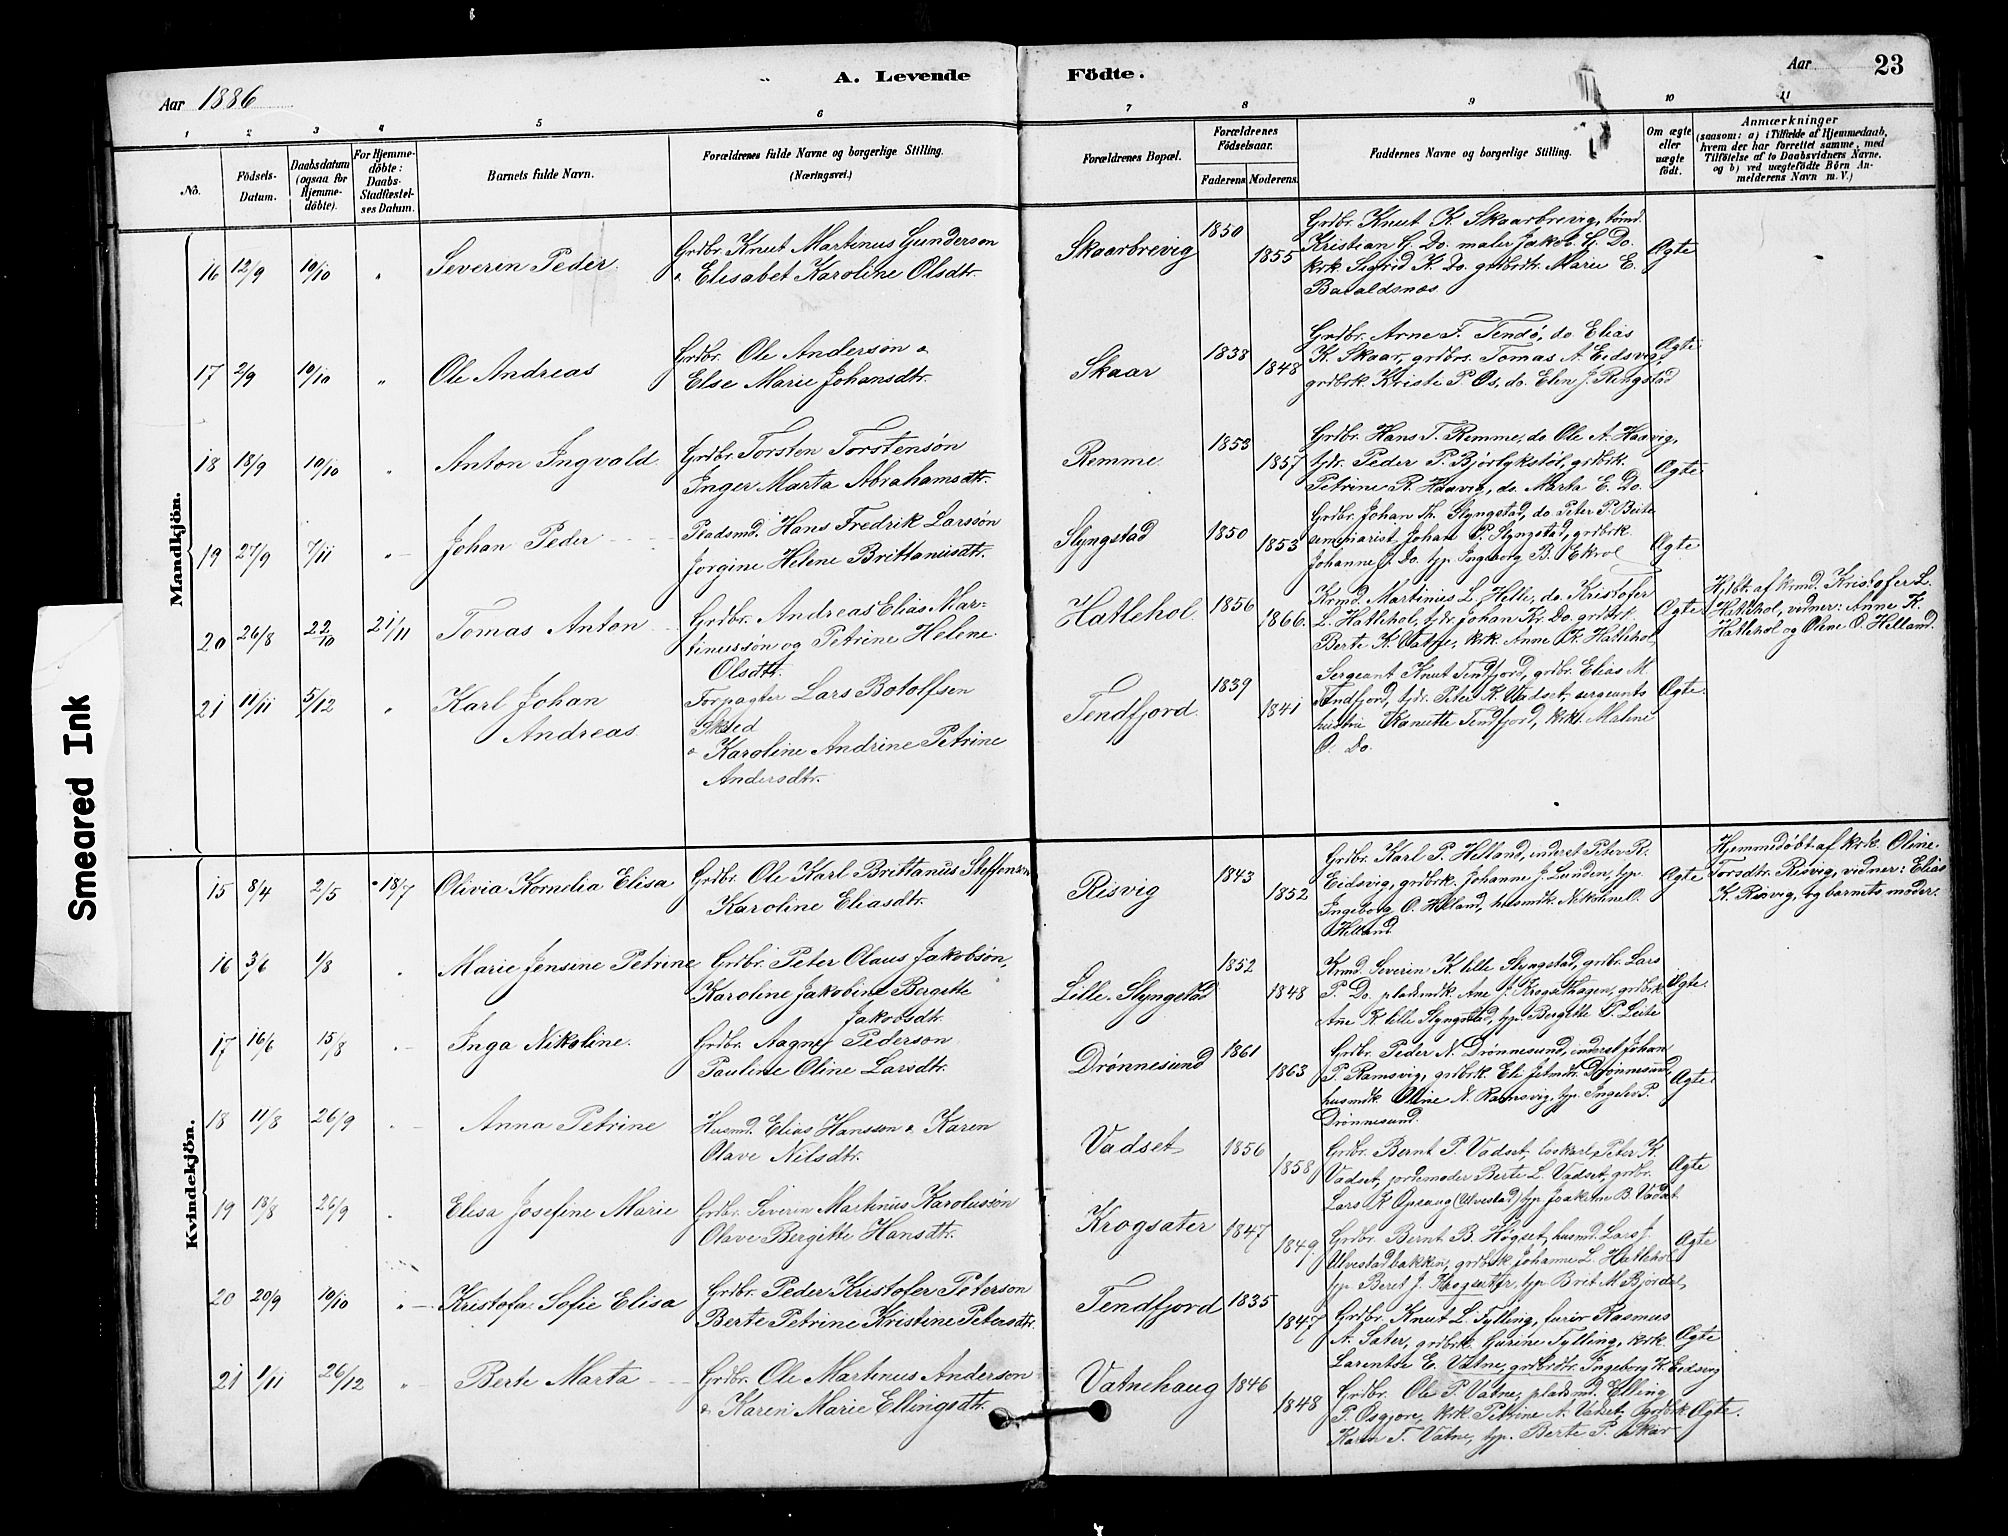 A. Levende Födte.
Aar 1886
Aar 23
1 2 3 4 5 6 7 8 9 10 11
No.
Födsels-Datum.
Daabsdatum (ogsaa for Hjemme-döbte).
For Hjemme-döbte: Daabs-Stadfæstel-ses Datum.
Barnets fulde Navn.
Forældrenes fulde Navne og borgerlige Stilling.
(Næringsvei.)
Forældrenes Bopæl.
Forældrenes Födselsaar.
Faderens Moderens.
Faddernes Navne og borgerlige Stilling.
Om ægte eller uægte födt.
Anmærkninger
(saasom: a) i Tilfælde af Hjemmedaab,
hvem der har forrettet samme, med
Tilföielse af to Daabsvidners Navne,
og b) ved uægtefödte Börn An-
melderens Navn m. V.)
Smeared Ink
Mandkjön.
16 12/9 10/10 " Severin Peder
Grdbr. Knut Martinus Gunderson
& Elisabet Karoline Olsdtr.
Skaarbrevig 1850 1855
Grdbr. Knut K. Skaarbrevig, tömd.
Kristian G. Do. maler Jakob G. Do.
krk. Sigfrid K. Do. grdbrdtr. Marie E.
Baraldsnes
Ægte
17 2/9 10/10 " Ole Andreas
Grdbr. Ole Anderson &
Else Marie Johansdtr.
Skaar 1838 1848
Grdbr. Arne F. Tendö, do Elias
K. Skaar, grdbrs. Tomas A. Eidsvig,
grdbrk. Kriste P. Os, do. Elen J. Ringstad
Ægte
18 18/9 10/10 " Anton Ingvald
Grdbr. Torsten Torstensön
Inger Marta Abrahamsdtr.
Remme 1853 1857
Grdbr. Hans T. Remme, do Ole A. Haavig,
tjdr. Peder P. Björlykstöl, grdbrk.
Petrine R. Haavig, do. Marta E. Do.
Ægte
19 27/9 7/11 " Johan Peder
Pladsmd. Hans Fredrik Larssön
Jorgine Helene Brittanusdtr.
Slyngstad 1850 1853
Grdbr. Johan Th. Slyngstad, do. Peter P. Beite
seminarist Johan P. Slyngstad, grdbrk.
Johanne J. Do. tjp. Ingeborg B. Ekrol
Ægte
20 26/8 22/10 21/11 Tomas Anton
Grdbr. Andreas Elias Mar-
tinussön og Petrine Helene
Olsdtr.
Hatlehol 1856 1866
Krmd. Martinus L. Helle, do. Kristofer
L. Hatlehol, tjdr. Johan Kr. Do. grdbrk.
Berte K. Vatne, krk. Anne K. Hatlehol
Ægte
Hjdbt. af krmd. Kristofer L.
Hatlehol, vidner: Anne K.
Hatlehol og Oline O. Helland.
21 11/11 5/12 " Karl Johan
Andreas
Forpagter Lars Botolfsen
& Karoline Andrine Petrine
Andersdtr.
Tendfjord 1839 1841
Sergeant Knut Tendfjord, grdbr. Elias M.
Tendfjord, tjdr. Peter K. Vadset, sergeants
hustru Kanutte Tendfjord, krk. Malene
O. Do.
Ægte
Kvindekjön.
15 8/4 2/5 18/7 Olivia Kornelia Elisa
Grdbr. Ole Karl Brittanus Steffenson
Karoline Eliasdtr.
Risvig 1843 1852
Grdbr. Karl P. Helland, inderst Peter R.
Eidsvig, grdbrk. Johanne J. Lunden, tjp.
Ingeborg O. Helland, husmdk. Nikoline O.
Helland
Ægte
Hjemmedöbt af krk. Oline
Torsdtr. Risvig, vidner: Elias
K. Risvig, og barnets moder.
16 3/6 1/8 " Marie Jensine Petrine
Grdbr. Peter Olaus Jakobsön,
Karoline Jakobine Bergitte
Jakobsdtr.
Lille-Slyngstad 1852 1848
Krmd. Severin K. lille Slyngstad, grdbr. Lars
P. Do. pladsmdk. Ane J. Krogsethagen, grdbrk.
Ane K lille Slyngstad, tjp. Bergitte P. Leite
Ægte.
17 16/6 15/8 " Inga Nikoline.
Grdbr. Aagnes Pederson
Pauline Oline Larsdtr.
Drönnesund 1861 1863
Grdbr. Peder N. Drönnesund, inderst Johan
P. Ramsvig, grdbrk. Eli Jetmdtr. Drönnesund,
husmdk. Oline N. Ramsvig, tjp. Ingeborg P.
Drönnesund.
Ægte.
18 11/8 26/9 " Anna Petrine
Husmd. Elias Hansson & Karen
Olave Nilsdtr.
Vadset 1856 1858
Grdbr. Bernt P. Vadset, löskarl Peter K.
Vadset, jordemoder Berte L. Vadset, grdbr.
Lars K Opsaug (Ulvestad) tjp. Joakime B. Vadset
Ægte
19 18/8 26/9 " Elisa Josefine Marie
Grdbr. Severin Martinus Karolussön
Olave Bergitte Hansdtr.
Krogsater 1847 1849
Grdbr. Bernt B. Högset, husmd. Lars J.
Ulvestadbakken, grdbrk Johanne L. Hatlehol
tjp. Beret J. Krogsæter, tjp. Brit M. Björdal
Ægte
20 20/9 10/10 " Kristofa Sofie Elisa
Grdbr. Peder Kristofer Peterson
Berte Petrine Kristine Petersdtr.
Tendfjord 1835 1847
Grdbr. Knut L. Tylling, furir Rasmus
A. Sater, grdbrk. Gurine Tylling, krk.
Larentse E. Vatne, grdbrdtr. Ingeborg K. Eidsvig
Ægte
21 1/11 26/12 " Berte Marta
Grdbr. Ole Martinus Anderson
& Karen Marie Ellingsdtr.
Vatnehaug 1846 1848
Grdbr. Ole P. Vatne, pladsmd. Elling
P. Osgjore, krk. Petrine A. Vatset, grdbrk
Karen T. Vatne, tjp. Berte P. Skar
Ægte.